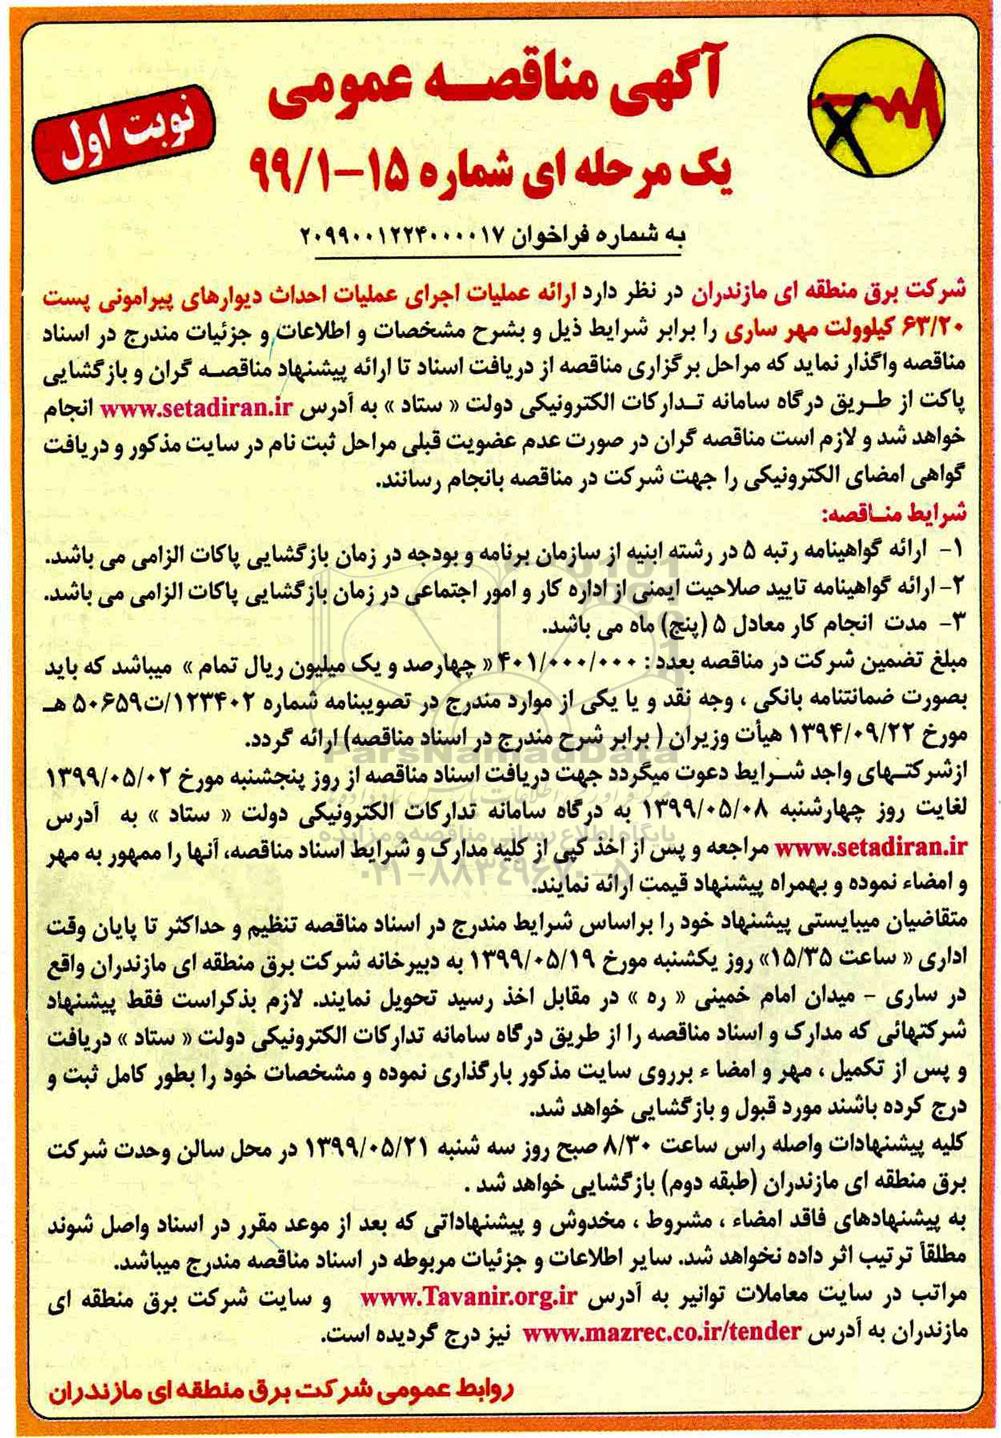 آگهی مناقصه عمومی
نوبت اول
یک مرحله ای شماره ۱۵-۹۹/۱
به شماره فراخوان ۲۰۹۹۰۰۱۲۲۴۰۰۰۰۱۷
شرکت برق منطقه ای مازندران در نظر دارد ارائه عملیات اجرای عملیات احداث دیوارهای پیرامونی پست
۶۳/۲۰ کیلوولت مهر ساری را برابر شرایط ذیل و بشرح مشخصات و اطلاعات و جزئیات مندرج در اسناد
مناقصه واگذار نماید که مراحل برگزاری مناقصه از دریافت اسناد تا ارائه پیشنهاد مناقصه گران و بازگشایی
پاکت از طریق درگاه سامانه تدارکات الکترونیکی دولت « ستاد » به آدرس www.setadiran.ir انجام
خواهد شد و لازم است مناقصه گران در صورت عدم عضویت قبلی مراحل ثبت نام در سایت مذکور و دریافت
گواهی امضای الکترونیکی را جهت شرکت در مناقصه بانجام رسانند.
شرایط مناقصه:
۱- ارائه گواهینامه رتبه ۵ در رشته ابنیه از سازمان برنامه و بودجه در زمان بازگشایی پاکات الزامی می باشد.
۲- ارائه گواهینامه تایید صلاحیت ایمنی از اداره کار و امور اجتماعی در زمان بازگشایی پاکات الزامی می باشد.
۳- مدت انجام کار معادل ۵ (پنج) ماه می باشد.
مبلغ تضمین شرکت در مناقصه بعدد : ۴۰۱/۰۰۰/۰۰۰ « چهارصد و یک میلیون ریال تمام » میباشد که باید
بصورت ضمانتنامه بانکی ، وجه نقد و یا یکی از موارد مندرج در تصویبنامه شماره ۱۲۳۴۰۲/ت۵۰۶۵۹ هـ
مورخ ۱۳۹۴/۰۹/۲۲ هیأت وزیران ( برابر شرح مندرج در اسناد مناقصه) ارائه گردد.
ازشرکتهای واجد شرایط دعوت میگردد جهت دریافت اسناد مناقصه از روز پنجشنبه مورخ ۱۳۹۹/۰۵/۰۲
لغایت روز چهارشنبه ۱۳۹۹/۰۵/۰۸ به درگاه سامانه تدارکات الکترونیکی دولت « ستاد » به آدرس
www.setadiran.ir مراجعه و پس از اخذ کپی از کلیه مدارک و شرایط اسناد مناقصه، آنها را ممهور به مهر
و امضاء نموده و بهمراه پیشنهاد قیمت ارائه نمایند.
متقاضیان میبایستی پیشنهاد خود را براساس شرایط مندرج در اسناد مناقصه تنظیم و حداکثر تا پایان وقت
اداری « ساعت ۱۵/۳۵» روز یکشنبه مورخ ۱۳۹۹/۰۵/۱۹ به دبیرخانه شرکت برق منطقه ای مازندران واقع
در ساری - میدان امام خمینی « ره » در مقابل اخذ رسید تحویل نمایند. لازم بذکراست فقط پیشنهاد
شرکتهائی که مدارک و اسناد مناقصه را از طریق درگاه سامانه تدارکات الکترونیکی دولت « ستاد » دریافت
و پس از تکمیل ، مهر و امضا ء برروی سایت مذکور بارگذاری نموده و مشخصات خود را بطور کامل ثبت و
درج کرده باشند مورد قبول و بازگشایی خواهد شد.
کلیه پیشنهادات واصله راس ساعت ۸/۳۰ صبح روز سه شنبه ۱۳۹۹/۰۵/۲۱ در محل سالن وحدت شرکت
برق منطقه ای مازندران (طبقه دوم) بازگشایی خواهد شد .
به پیشنهادهای فاقد امضاء ، مشروط ، مخدوش و پیشنهاداتی که بعد از موعد مقرر در اسناد واصل شوند
مطلقاً ترتیب اثر داده نخواهد شد. سایر اطلاعات و جزئیات مربوطه در اسناد مناقصه مندرج میباشد.
مراتب در سایت معاملات توانیر به آدرس www.Tavanir.org.ir و سایت شرکت برق منطقه ای
مازندران به آدرس www.mazrec.co.ir/tender نیز درج گردیده است.
روابط عمومی شرکت برق منطقه ای مازندران
ParsNamadData
پایگاه اطلاع رسانی مناقصه و مزایده
۰۲۱-۸۸۳۴۹۶۷۰-۵